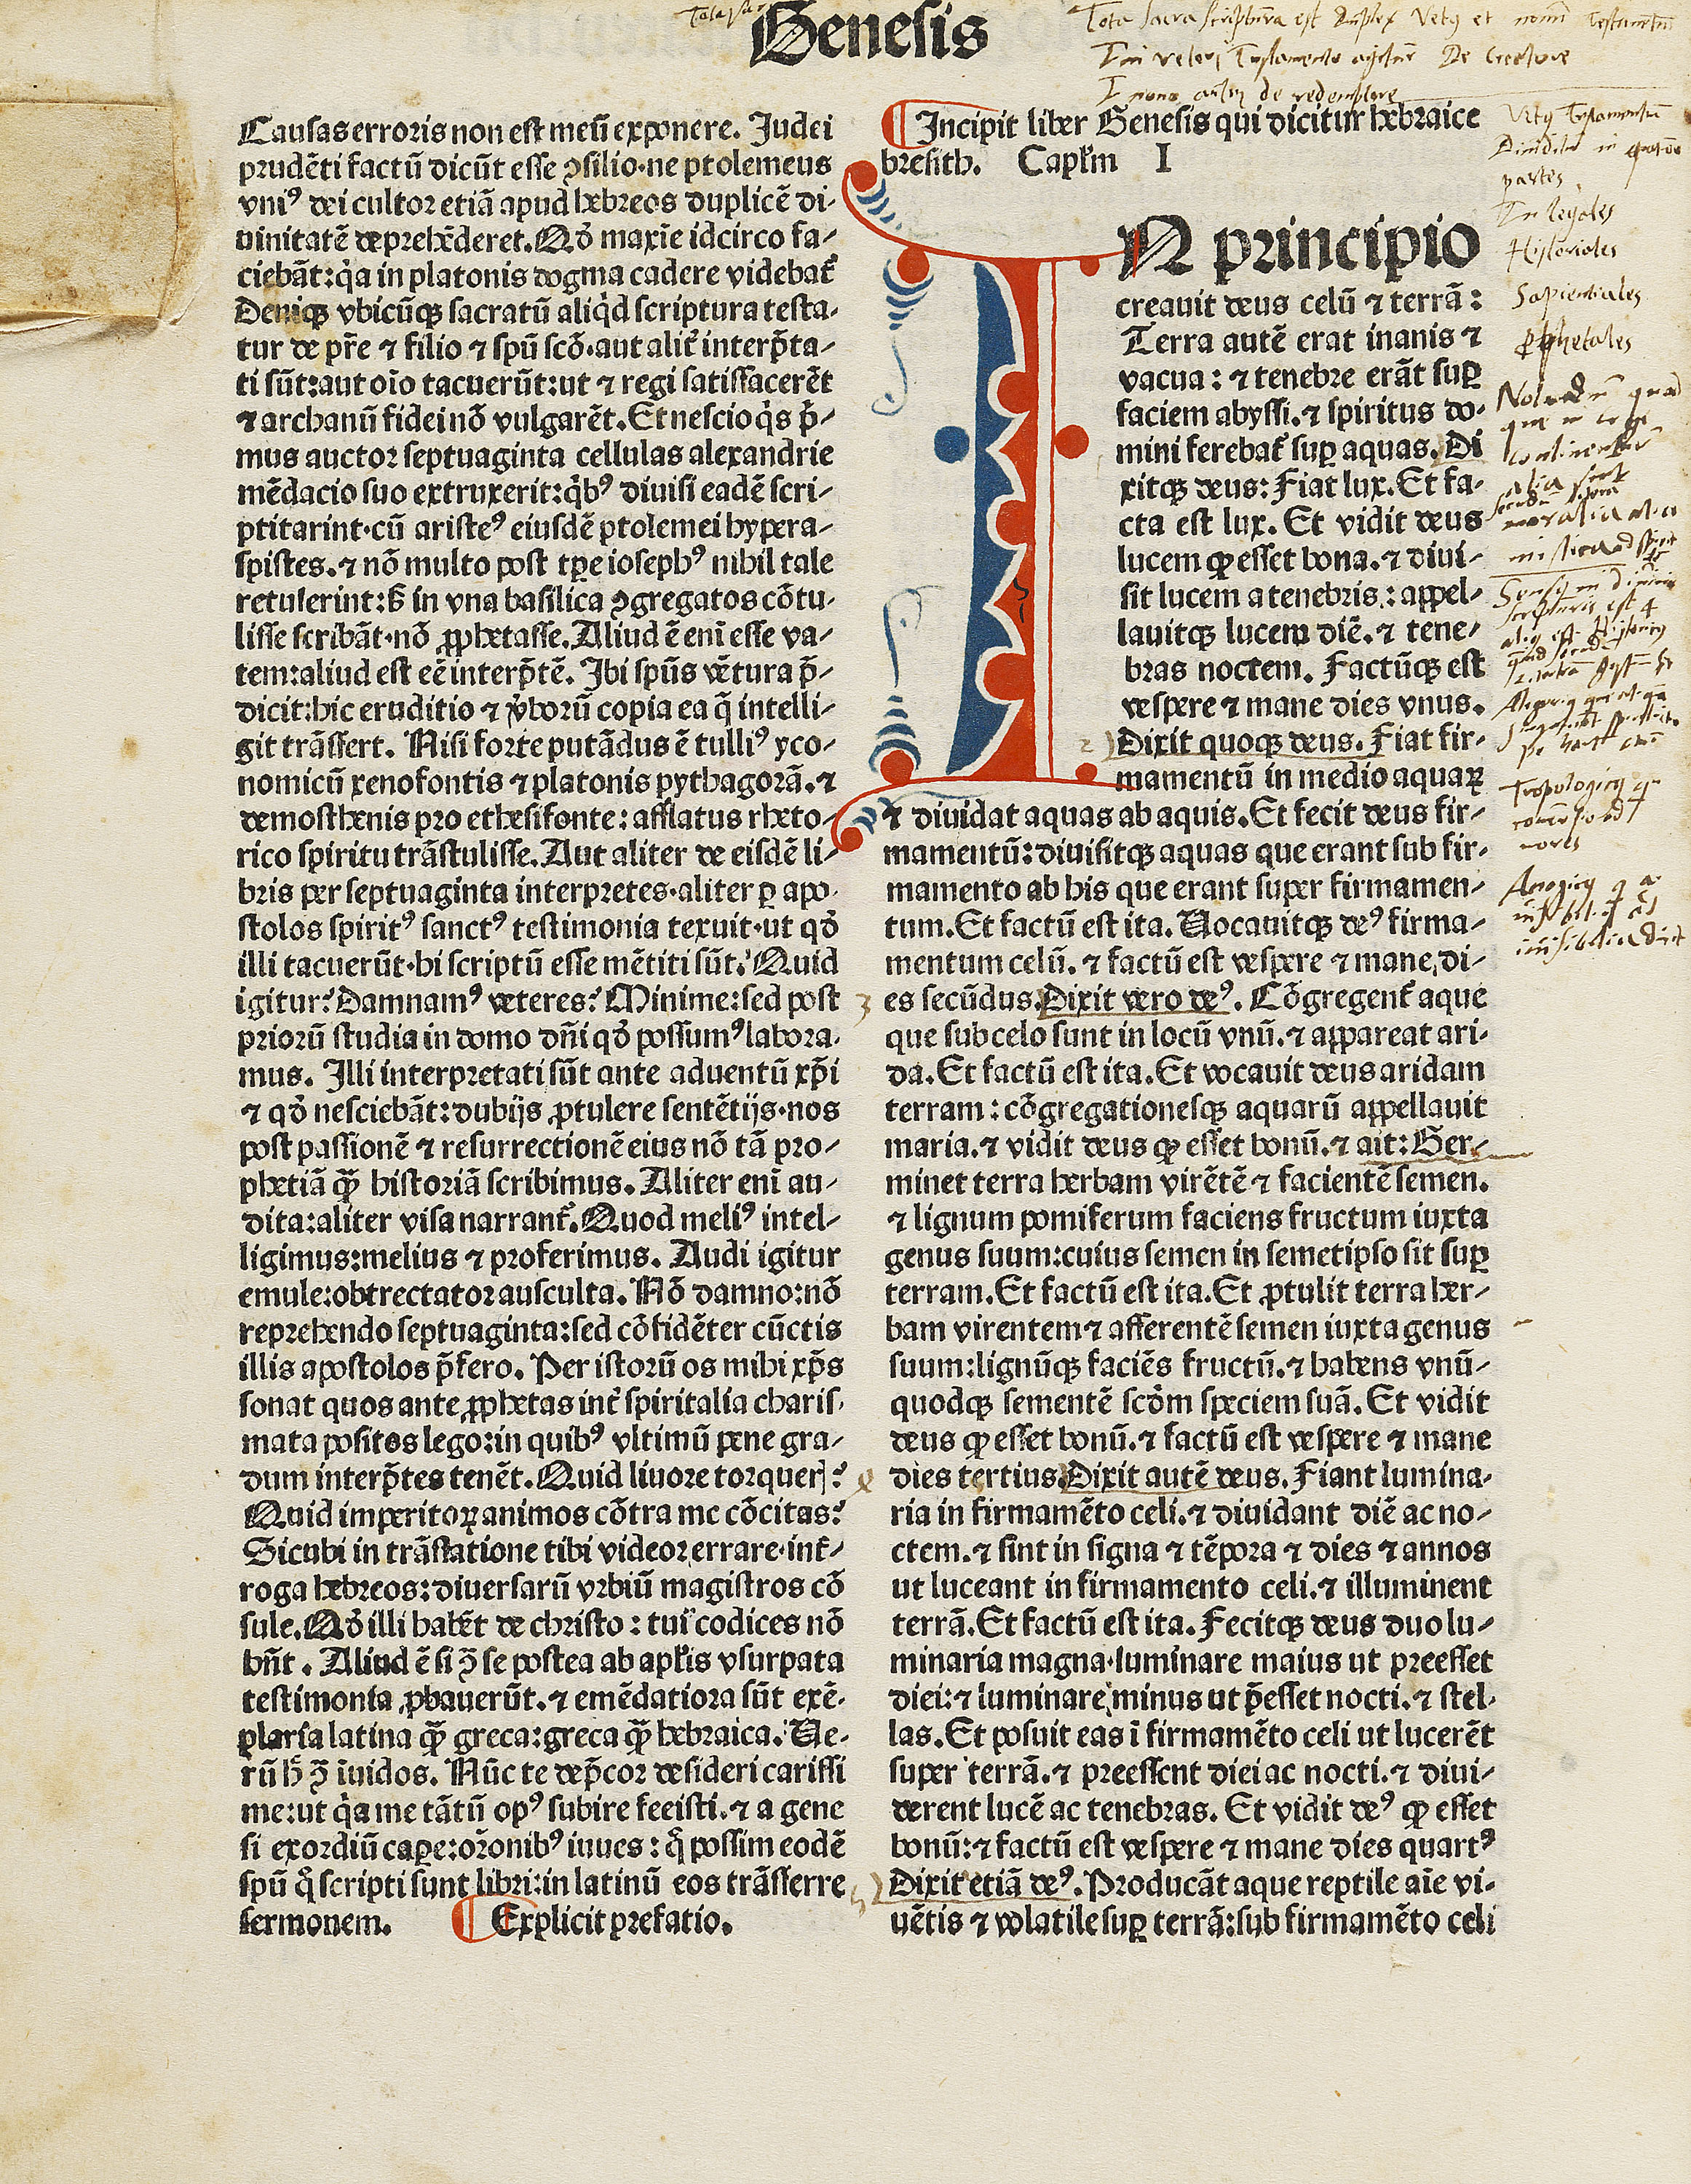 Genesis
Tota sacra scriptura est duplex Vetꝰ et nouũ testamentũ
In veteri Testamento agitur De Creatore
I nono autẽ de redemptore
Causas erroris non est meũ exponere. Judei
prudẽti factũ dicũt esse ꝯsilio·ne ptolemeus
vniꝰ dei cultor etiã apud hebreos duplicẽ di-
uinitatẽ deprehẽderet. Qđ maxĩe idcirco fa-
ciebãt: qͥa in platonis dogma cadere videbat᷑
Deniqꝫ vbicũqꝫ sacratũ aliqͥd scriptura testa-
tur de pr̃e ⁊ filio ⁊ spũ scõ·aut alit᷑ interp̃ta-
ti sũt: aut oĩo tacuerũt: ut ⁊ regi satisfacerẽt
⁊ archanũ fidei nõ vulgarẽt. Et nescio qͥs p̃-
mus auctor septuaginta cellulas alexandrie
mẽdacio suo extruxerit: qͥbꝰ diuisi eadẽ scri-
ptitarint·cũ aristeꝰ eiusdẽ ptolemei hypera-
spistes. ⁊ nõ multo post tꝑe iosephꝰ nihil tale
retulerint: ꝫ in vna basilica ꝯgregatos cõtu-
lisse scribãt·nõ ꝓphetasse. Aliud ẽ eni esse va-
tem: aliud est eẽ interp̃tẽ. Ibi spũs vẽtura p̃-
dicit: hic eruditio ⁊ v̾borũ copia ea q̃ intelli-
git trãsfert. Nisi forte putãdus ẽ tulliꝰ yco-
nomicũ xenofontis ⁊ platonis pythagorã. ⁊
demosthenis pro ethesifonte: afflatus rheto-
rico spiritu trãstulisse. Aut aliter de eisdẽ li-
bris per septuaginta interpretes·aliter ꝑ apo-
stolos spiritꝰ sanctꝰ testimonia texuit·ut qđ
illi tacuerũt·hi scriptũ esse mẽtiti sũt. Quid
igitur? Damnamꝰ veteres? Minime: sed post
priorũ studia in domo dñi qđ possumꝰ labora-
mus. Illi interpretati sũt ante aduentũ xp̃i
⁊ qđ nesciebãt: dubijs ꝓtulere sentẽtijs·nos
post passionẽ ⁊ resurrectionẽ eius nõ tã pro-
phetiã qꝫ̃ historiã scribimus. Aliter eni au-
dita: aliter visa narrant᷑. Quod meliꝰ intel-
ligimus: melius ⁊ proferimus. Audi igitur
emule: obtrectator ausculta. Nõ damno: nõ
reprehendo septuaginta: sed cõfidẽter cũctis
illis apostolos p̃fero. Per istorũ os mihi xp̃s
sonat quos ante ꝓphetas int᷑ spiritalia charis-
mata positos lego: in quibꝰ vltimũ pene gra-
dum interp̃tes tenẽt. Quid liuore torqueris?
Quid imperitoꝝ animos cõtra me cõcitas?
Sicubi in trãslatione tibi videor errare·int᷑-
roga hebreos: diuersarũ vrbiũ magistros cõ
sule. Qđ illi habẽt de christo: tui codices nõ
hñt. Aliud ẽ si ꝯ̃ se postea ab apl'is vsurpata
testimonia ꝓbauerũt. ⁊ emẽdatiora sũt exẽ-
plaria latina qꝫ̃ greca: greca qꝫ̃ hebraica. Ue-
rũ hͨ ꝯ̃ ĩuidos. Nũc te dep̃cor desideri carissi
me: ut qͥa me tãtũ opꝰ subire fecisti. ⁊ a gene
si exordiũ capere: or̃onibꝰ iuues: qͦ possim eodẽ
spũ qͦ scripti sunt libri: in latinũ eos trãsferre
sermonem. Explicit prefatio.
Incipit liber Genesis qui dicitur hebraice
bresith. Capl'm I
IN principio
creauit deus celũ ⁊ terrã:
Terra autẽ erat inanis ⁊
vacua: ⁊ tenebre erãt suꝑ
faciem abyssi. ⁊ spiritus do-
mini ferebat᷑ suꝑ aquas. Di
xitqꝫ deus: Fiat lux. Et fa-
cta est lux. Et vidit deus
lucem ꝙ esset bona. ⁊ diui-
sit lucem a tenebris: appel-
lauitqꝫ lucem diẽ. ⁊ tene-
bras noctem. Factũqꝫ est
vespere ⁊ mane dies vnus.
2 Dixit quoqꝫ deus. Fiat fir-
mamentũ in medio aquaꝝ
⁊ diuidat aquas ab aquis. Et fecit deus fir-
mamentũ: diuisitqꝫ aquas que erant sub fir-
mamento ab his que erant super firmamen-
tum. Et factũ est ita. Uocauitqꝫ deꝰ firma-
mentum celũ. ⁊ factũ est vespere ⁊ mane, di-
3 es secũdus. Dixit vero deꝰ. Cõgregent᷑ aque
que sub celo sunt in locũ vnũ. ⁊ appareat ari-
da. Et factũ est ita. Et vocauit deus aridam
terram: cõgregationesqꝫ aquarũ appellauit
maria. ⁊ vidit deus ꝙ esset bonũ. ⁊ ait: Ger-
minet terra herbam virẽtẽ ⁊ facientẽ semen.
⁊ lignum pomiferum faciens fructum iuxta
genus suum: cuius semen in semetipso sit suꝑ
terram. Et factũ est ita. Et ꝓtulit terra her-
bam virentem ⁊ afferentẽ semen iuxta genus
suum: lignũqꝫ faciẽs fructũ. ⁊ habens vnũ-
quodqꝫ sementẽ scđm speciem suã. Et vidit
deus ꝙ esset bonũ. ⁊ factũ est vespere ⁊ mane
dies tertius. Dixit autẽ deus. Fiant lumina-
ria in firmamẽto celi. ⁊ diuidant diẽ ac no-
ctem. ⁊ sint in signa ⁊ tẽpora ⁊ dies ⁊ annos
ut luceant in firmamento celi. ⁊ illuminent
terrã. Et factũ est ita. Fecitqꝫ deus duo lu-
minaria magna·luminare maius ut preesset
diei: ⁊ luminare minus ut p̃esset nocti. ⁊ stel-
las. Et posuit eas ĩ firmamẽto celi ut lucerẽt
super terrã. ⁊ preessent diei ac nocti. ⁊ diui-
derent lucẽ ac tenebras. Et vidit deꝰ ꝙ esset
bonũ: ⁊ factũ est vespere ⁊ mane dies quartꝰ
5 Dixit etiã deꝰ. Producãt aque reptile aĩe vi-
uẽtis ⁊ volatile suꝑ terrã: sub firmamẽto celi
Vetꝰ Testamentũ
Diuiditur in quatuor
partes
In legales
Historiales
Sapientiales
Prophetales